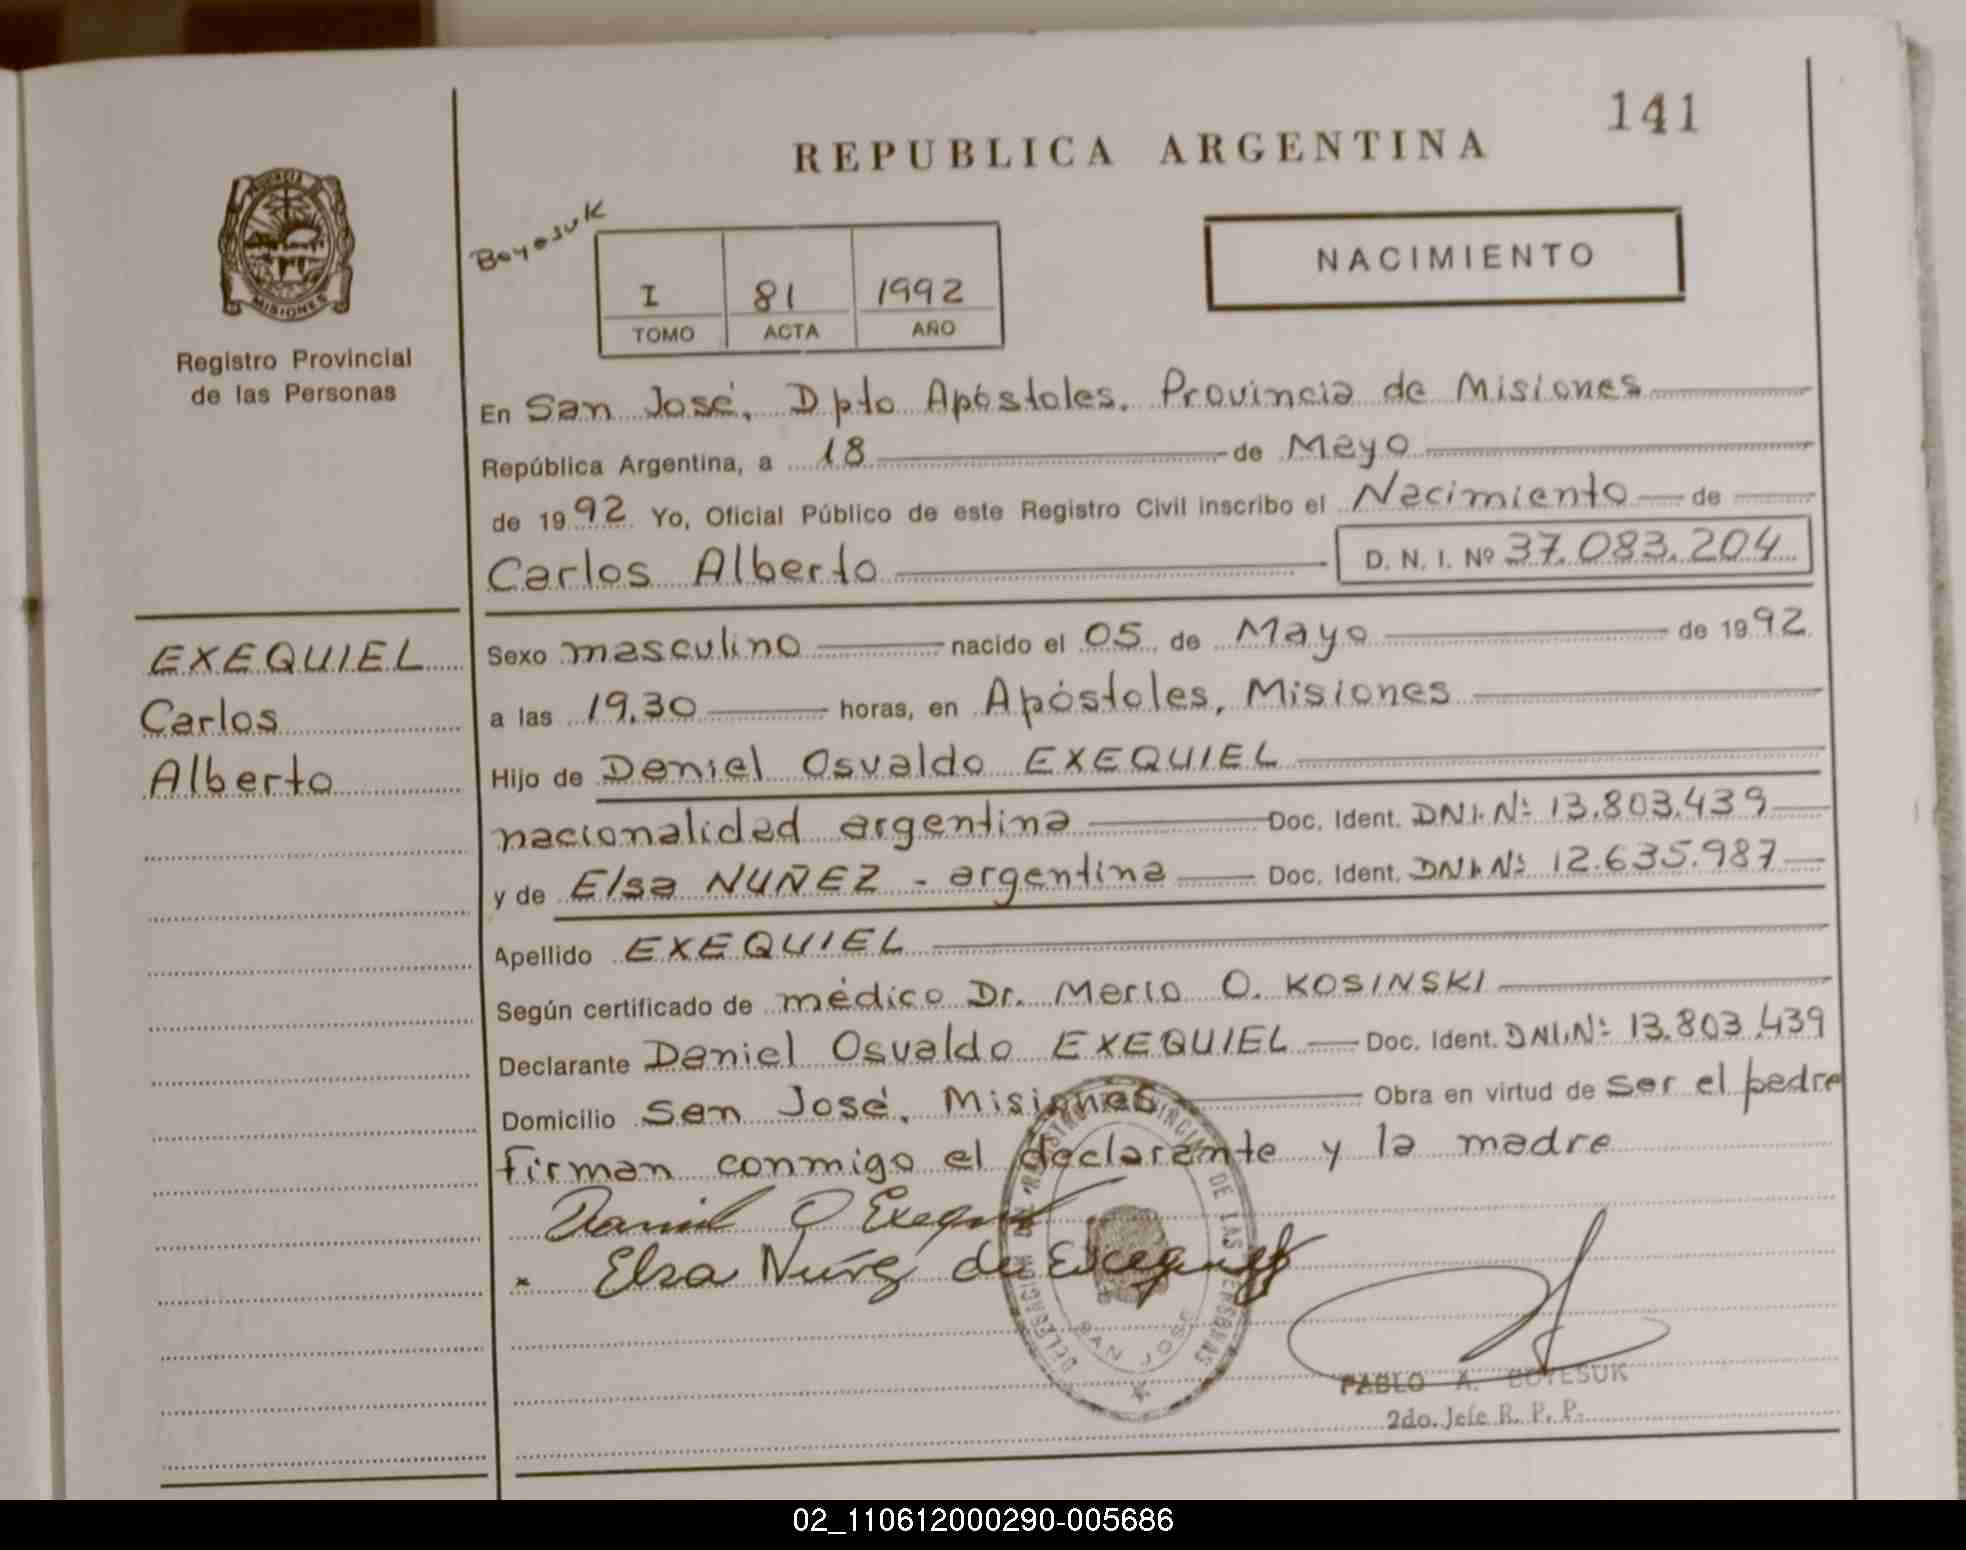 141
REPUBLICA ARGENTINA
PROVINCIA DE
MISIONES
Registro Provincial
de las Personas
Boyesuk
I 81 1992
TOMO ACTA AÑO
NACIMIENTO
En San José, Dpto Apóstoles. Provincia de Misiones
República Argentina, a 18 de Mayo
de 1992 Yo, Oficial Público de este Registro Civil inscribo el Nacimiento de
Carlos Alberto D. N. I. Nº 37.083.204
EXEQUIEL
Carlos
Alberto
Sexo masculino nacido el 05 de Mayo de 1992
a las 19,30 horas, en Apóstoles, Misiones
Hijo de Daniel Osvaldo EXEQUIEL
nacionalidad argentina Doc. Ident. DNI. Nº 13.803.439
y de Elsa NUÑEZ - argentina Doc. Ident. DNI. Nº 12.635.987
Apellido EXEQUIEL
Según certificado de médico Dr. Mario O. KOSINSKI
Declarante Daniel Osvaldo EXEQUIEL Doc. Ident. DNI. Nº 13.803.439
Domicilio San José, Misiones Obra en virtud de ser el padre
firman conmigo el declarante y la madre
Daniel O Exequiel
Elsa Nuñez de Exequiel
DELEGACION DEL REGISTRO PROVINCIAL DE LAS PERSONAS
SAN JOSE
PABLO A. BOYESUK
2do. Jefe R. P. P.
02_110612000290-005686